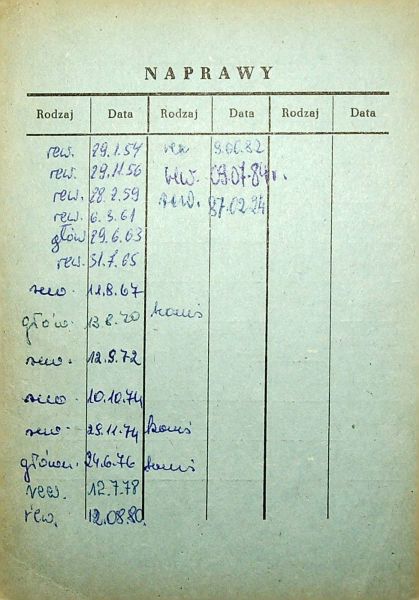 NAPRAWY
Rodzaj Data Rodzaj Data Rodzaj Data
rew. 29.1.54 rew 9.06.82
rew. 29.11.56 rew. 09.07.84r.
rew. 28.2.59 rew. 87.02.24
rew. 6.3.61
głów 29.6.63
rew. 31.7.65
rew. 11.8.67
głów. 13.8.70
rew. 12.9.72
rew. 10.10.74
rew. 29.11.74
główn. 24.6.76
rew. 12.7.78
rew. 12.08.80.